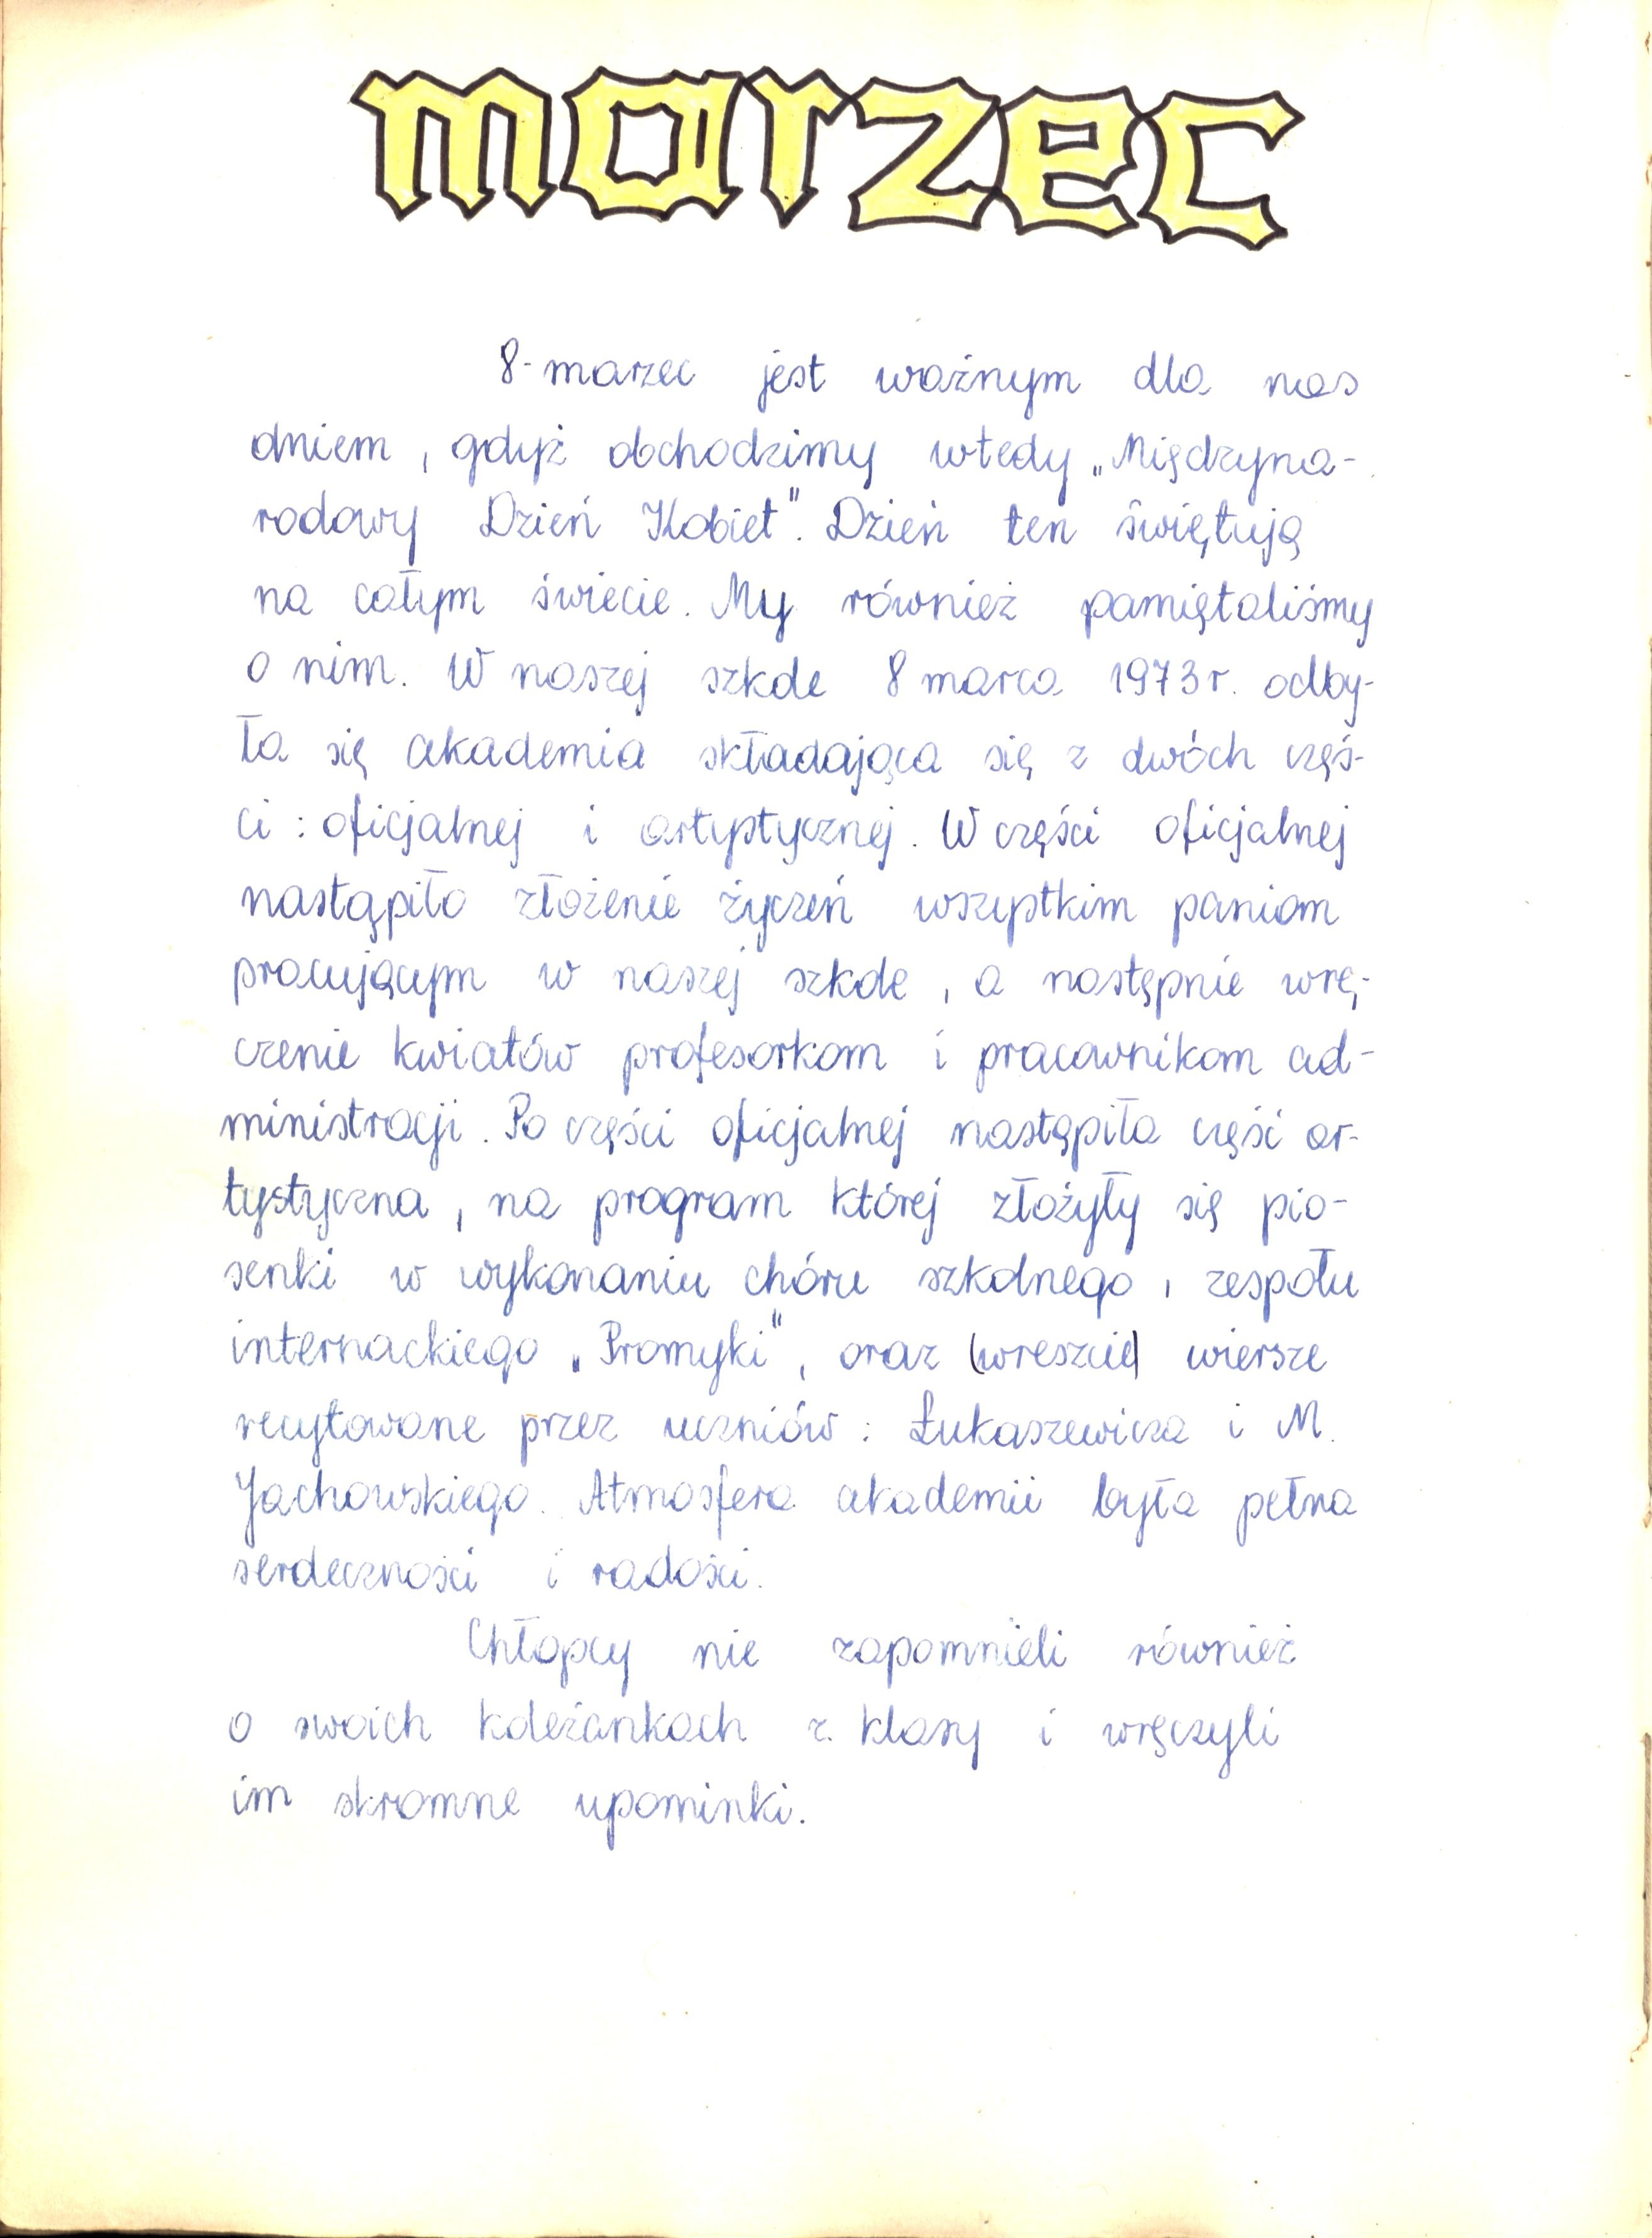 marzec
8-marzec jest ważnym dla nas
dniem, gdyż obchodzimy wtedy „Międzyna-
rodowy Dzień Kobiet". Dzień ten świętują
na całym świecie. My również pamiętaliśmy
o nim. W naszej szkole 8 marca 1973 r. odby-
ła się akademia składająca się z dwóch częś-
ci: oficjalnej i artystycznej. W części oficjalnej
nastąpiło złożenie życzeń wszystkim paniom
pracującym w naszej szkole, a następnie wrę-
czenie kwiatów profesorkom i pracownikom ad-
ministracji. Po części oficjalnej nastąpiła część ar-
tystyczna, na program której złożyły się pio-
senki w wykonaniu chóru szkolnego, zespołu
internackiego „Promyki", oraz (wreszcie) wiersze
recytowane przez uczniów: Łukaszewicza i M.
Jachowskiego. Atmosfera akademii była pełna
serdeczności i radości.
Chłopcy nie zapomnieli również
o swoich koleżankach z klasy i wręczyli
im skromne upominki.